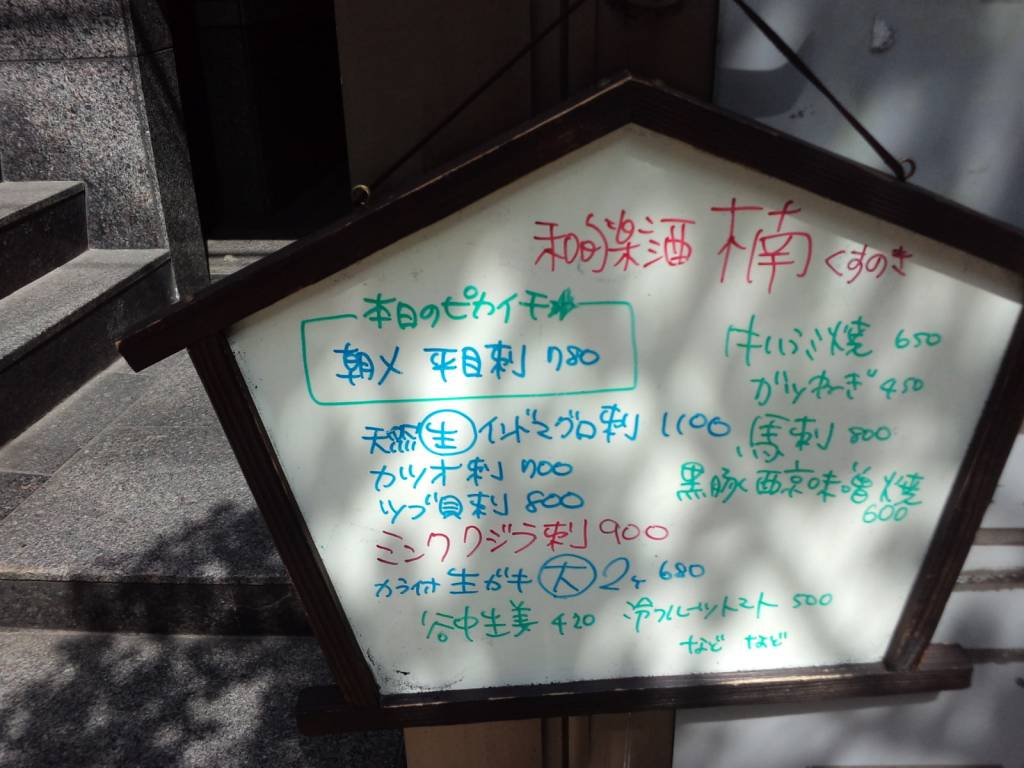 和的楽酒 楠 くすのき
本日のピカイチ★
朝〆 平目刺 780
天然 生 インドマグロ刺 1100
カツオ刺 700
ツブ貝刺 800
ミンククジラ刺 900
カラ付 生ガキ 大 2ヶ 680
谷中生姜 420
冷フルーツトマト 500
焼 650
ガツねぎ 450
馬刺 800
黒豚西京味噌焼
600
など など